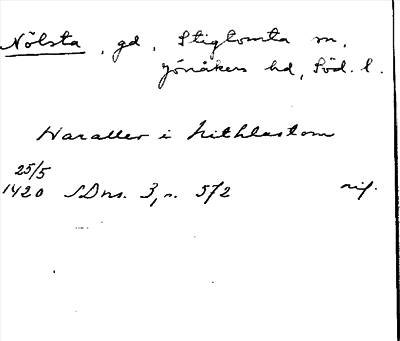 Nölsta, gd, Stigtomta sn,
Jönåkers hd, Söd. l.
Haraller i Nithlastom
25/5
1420 SDns. 3, s. 572 rif.